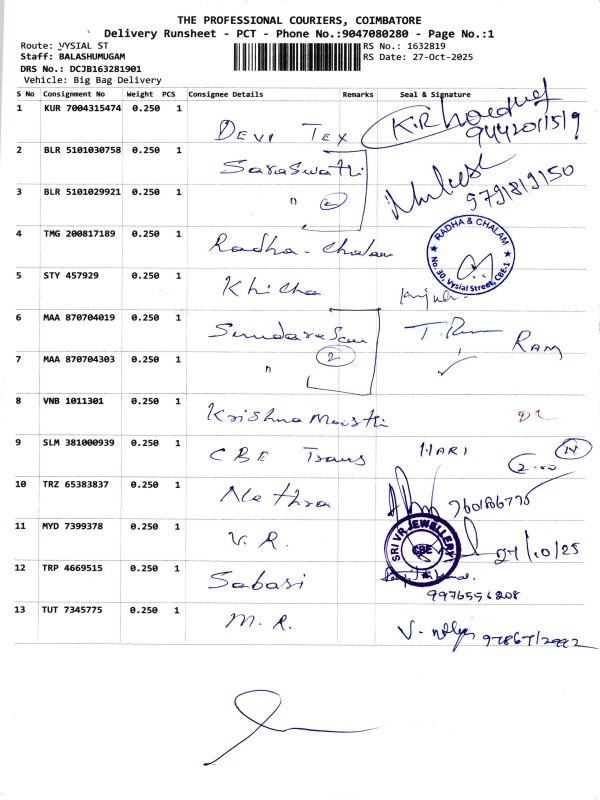 THE PROFESSIONAL COURIERS, COIMBATORE
Delivery Runsheet - PCT - Phone No.:9047080280 - Page No.:1
Route: VYSIAL ST RS No.: 1632819
Staff: BALASHUMUGAM RS Date: 27-Oct-2025
DRS No.: DCJB163281901
Vehicle: Big Bag Delivery
S No Consignment No Weight PCS Consignee Details Remarks Seal & Signature
1 KUR 7004315474 0.250 1 Devi Tex K.R 9442011519
2 BLR 5101030758 0.250 1 Saraswathi
3 BLR 5101029921 0.250 1 " 2 9791819150
4 TMG 200817189 0.250 1 Radha - Chalam RADHA & CHALAM No: 30, Vysial Street, CBE-1
5 STY 457929 0.250 1 Khicha
6 MAA 870704019 0.250 1 Sundaresan RAM
7 MAA 870704303 0.250 1 " 2
8 VNB 1011301 0.250 1 Krishna
9 SLM 381000939 0.250 1 CBE Trans HARI 2.00
10 TRZ 65383837 0.250 1 Nethra
11 MYD 7399378 0.250 1 V. R. SRI VR JEWELLERY CBE 27/10/25
12 TRP 4669515 0.250 1 Sabari 9976556208
13 TUT 7345775 0.250 1 M. R.